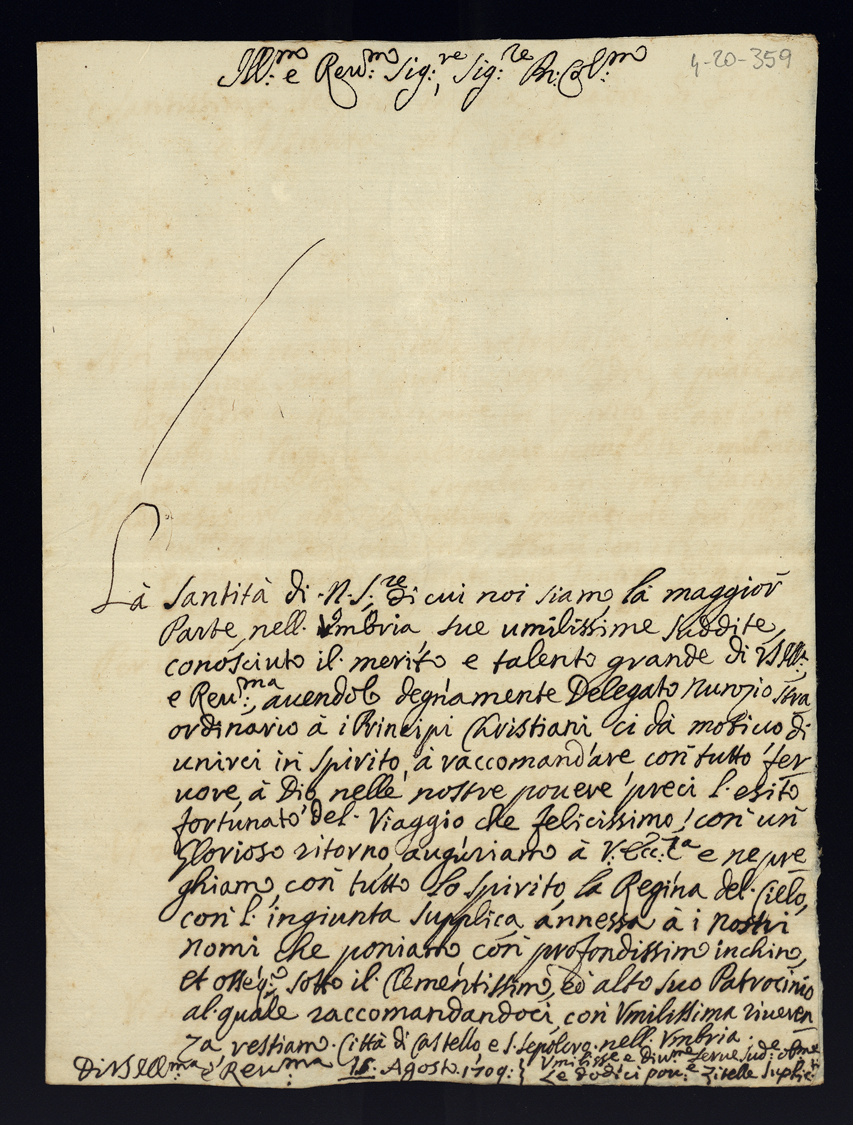 Ill:mo e Reu:mo Sig:re, Sig:re Pn: Col:mo
4-20-359
Là Santità di N. S:re di cui noi siamo là maggior
Parte, nell. Vmbria, sue umilissime suddite,
conosciuto il. merito e talento grande di VS Ill:
e Reu:ma, auendolo degnamente Delegato Nunzio stra
ordinario à i Principi Christiani ci dà motiuo di
unirci in spirito, à raccomandare con tutto fer
uore, à Dio, nelle nostre pouere preci l. esito
fortunato del. Viaggio che felicissimo, con un
glorioso ritorno, auguriamo à V. Ecc:za e ne pre
ghiamo, con tutto lo spirito, la Regina del. Cielo,
con l. ingiunta supplica, annessa à i nostri
nomi che poniamo con profondissimo inchino,
et osseq:o sotto il. Clementissimo, ed alto suo Patrocinio
al. quale raccomandandoci, con Vmilissima riueren
za, restiamo. Città di Castello, e S. Sepolcro. nell. Vmbria
Di VS Ill:ma e Reu:ma 15. Agosto. 1709:
Vmiliss:e e diu:me serue sud:e obme
Le dodici pou:e Zitelle suplic:ti